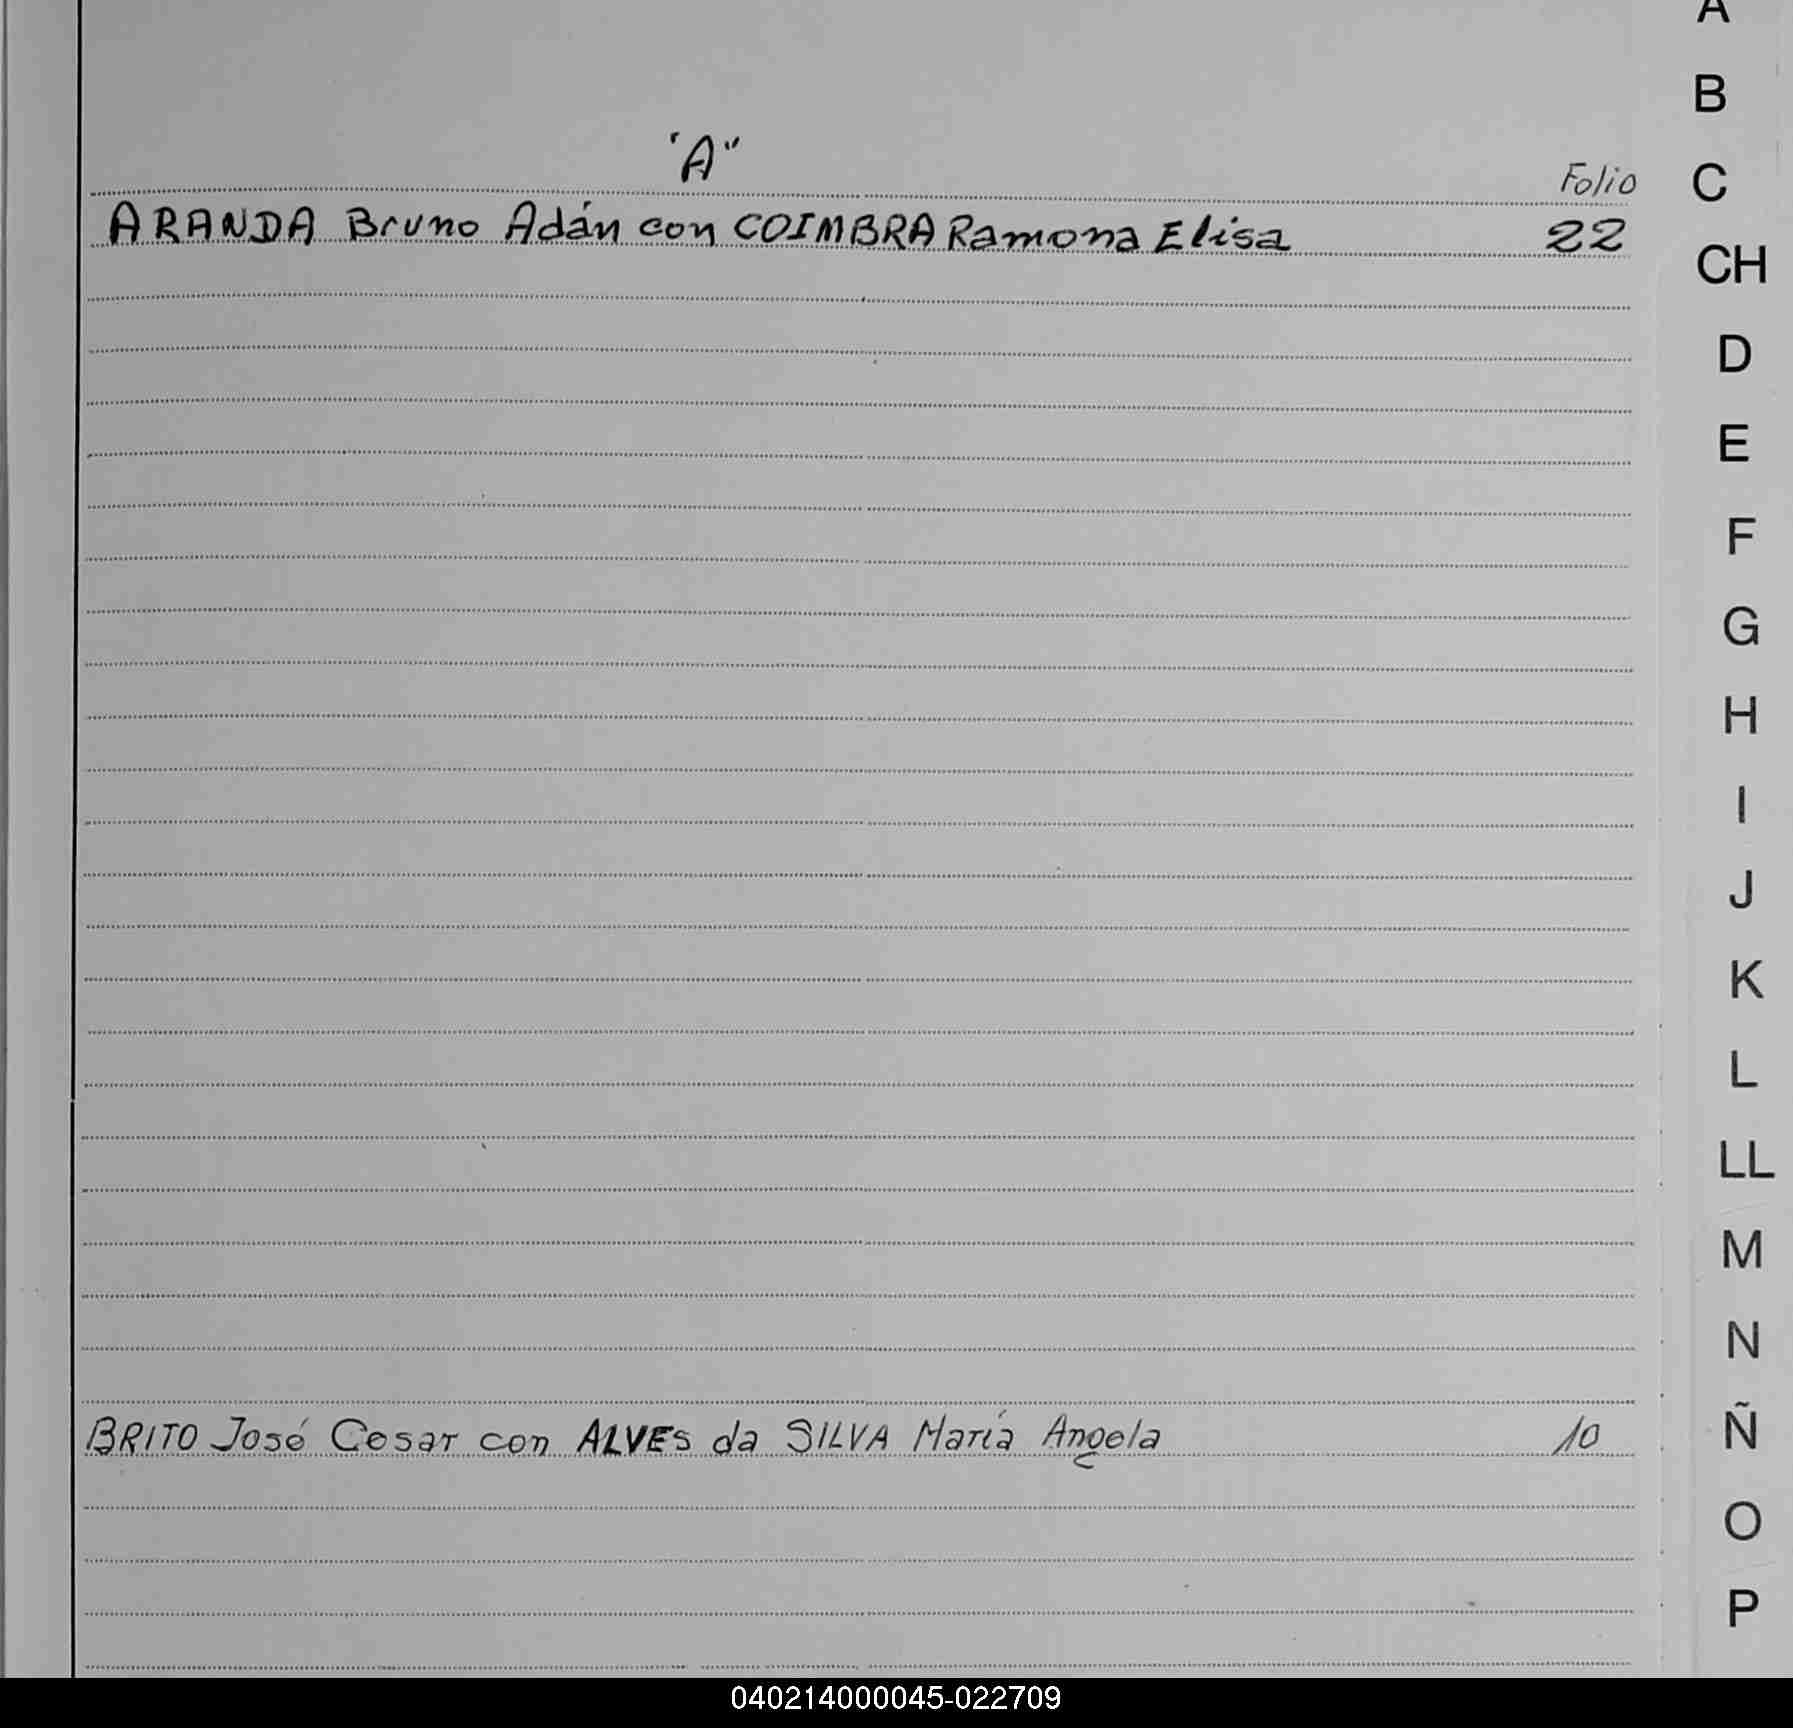 "A"
Folio
ARANDA Bruno Adán con COIMBRA Ramona Elisa 22
BRITO José Cesar con ALVES da SILVA María Angela 10
A
B
C
CH
D
E
F
G
H
I
J
K
L
LL
M
N
Ñ
O
P
040214000045-022709